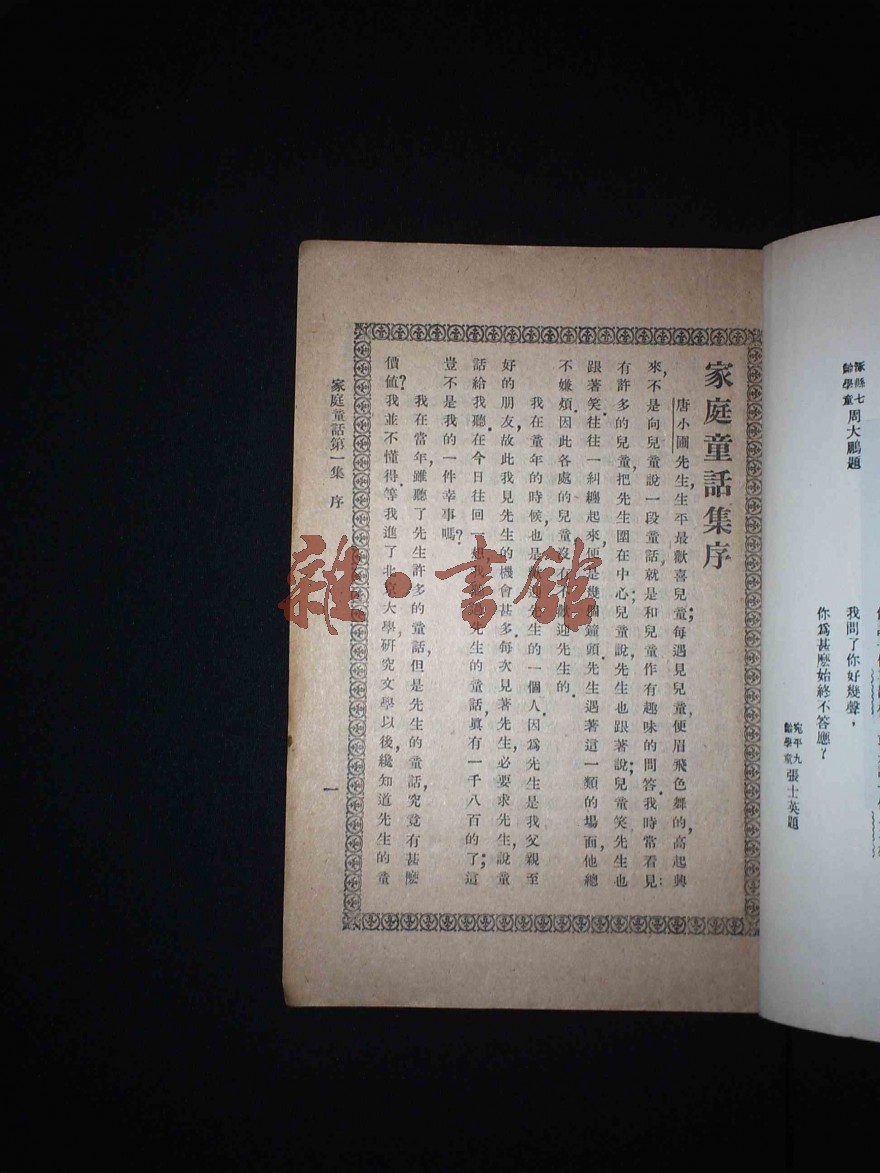 涿縣七
齡學童 周大鵬題
我問了你好幾聲，
你爲甚麽始終不答應？
宛平九
齡學童 張士英題
家庭童話集序
唐小圃先生，生平最歡喜兒童；每遇見兒童，便眉飛色舞的，高起興
來，不是向兒童說一段童話，就是和兒童作有趣味的問答。我時常看見
有許多的兒童，把先生圍在中心；兒童說，先生也跟著說；兒童笑先生也
跟著笑。往往一糾纏起來，便是幾個鐘頭。先生遇著這一類的場面，他總
不嫌煩。因此各處的兒童沒有不歡迎先生的。
我在童年的時候，也是歡迎先生的一個人。因爲先生是我父親至
好的朋友，故此我見先生的機會甚多。每次見著先生，必要求先生，說童
話給我聽。在今日往回一想，我聽先生的童話，眞有一千八百的了；這
豈不是我的一件幸事嗎？
我在當年，雖聽了先生許多的童話，但是先生的童話，究竟有甚麽
價値？我並不懂得。等我進了北京大學，研究文學以後，纔知道先生的童
家庭童話第一集 序
一
雜·書館